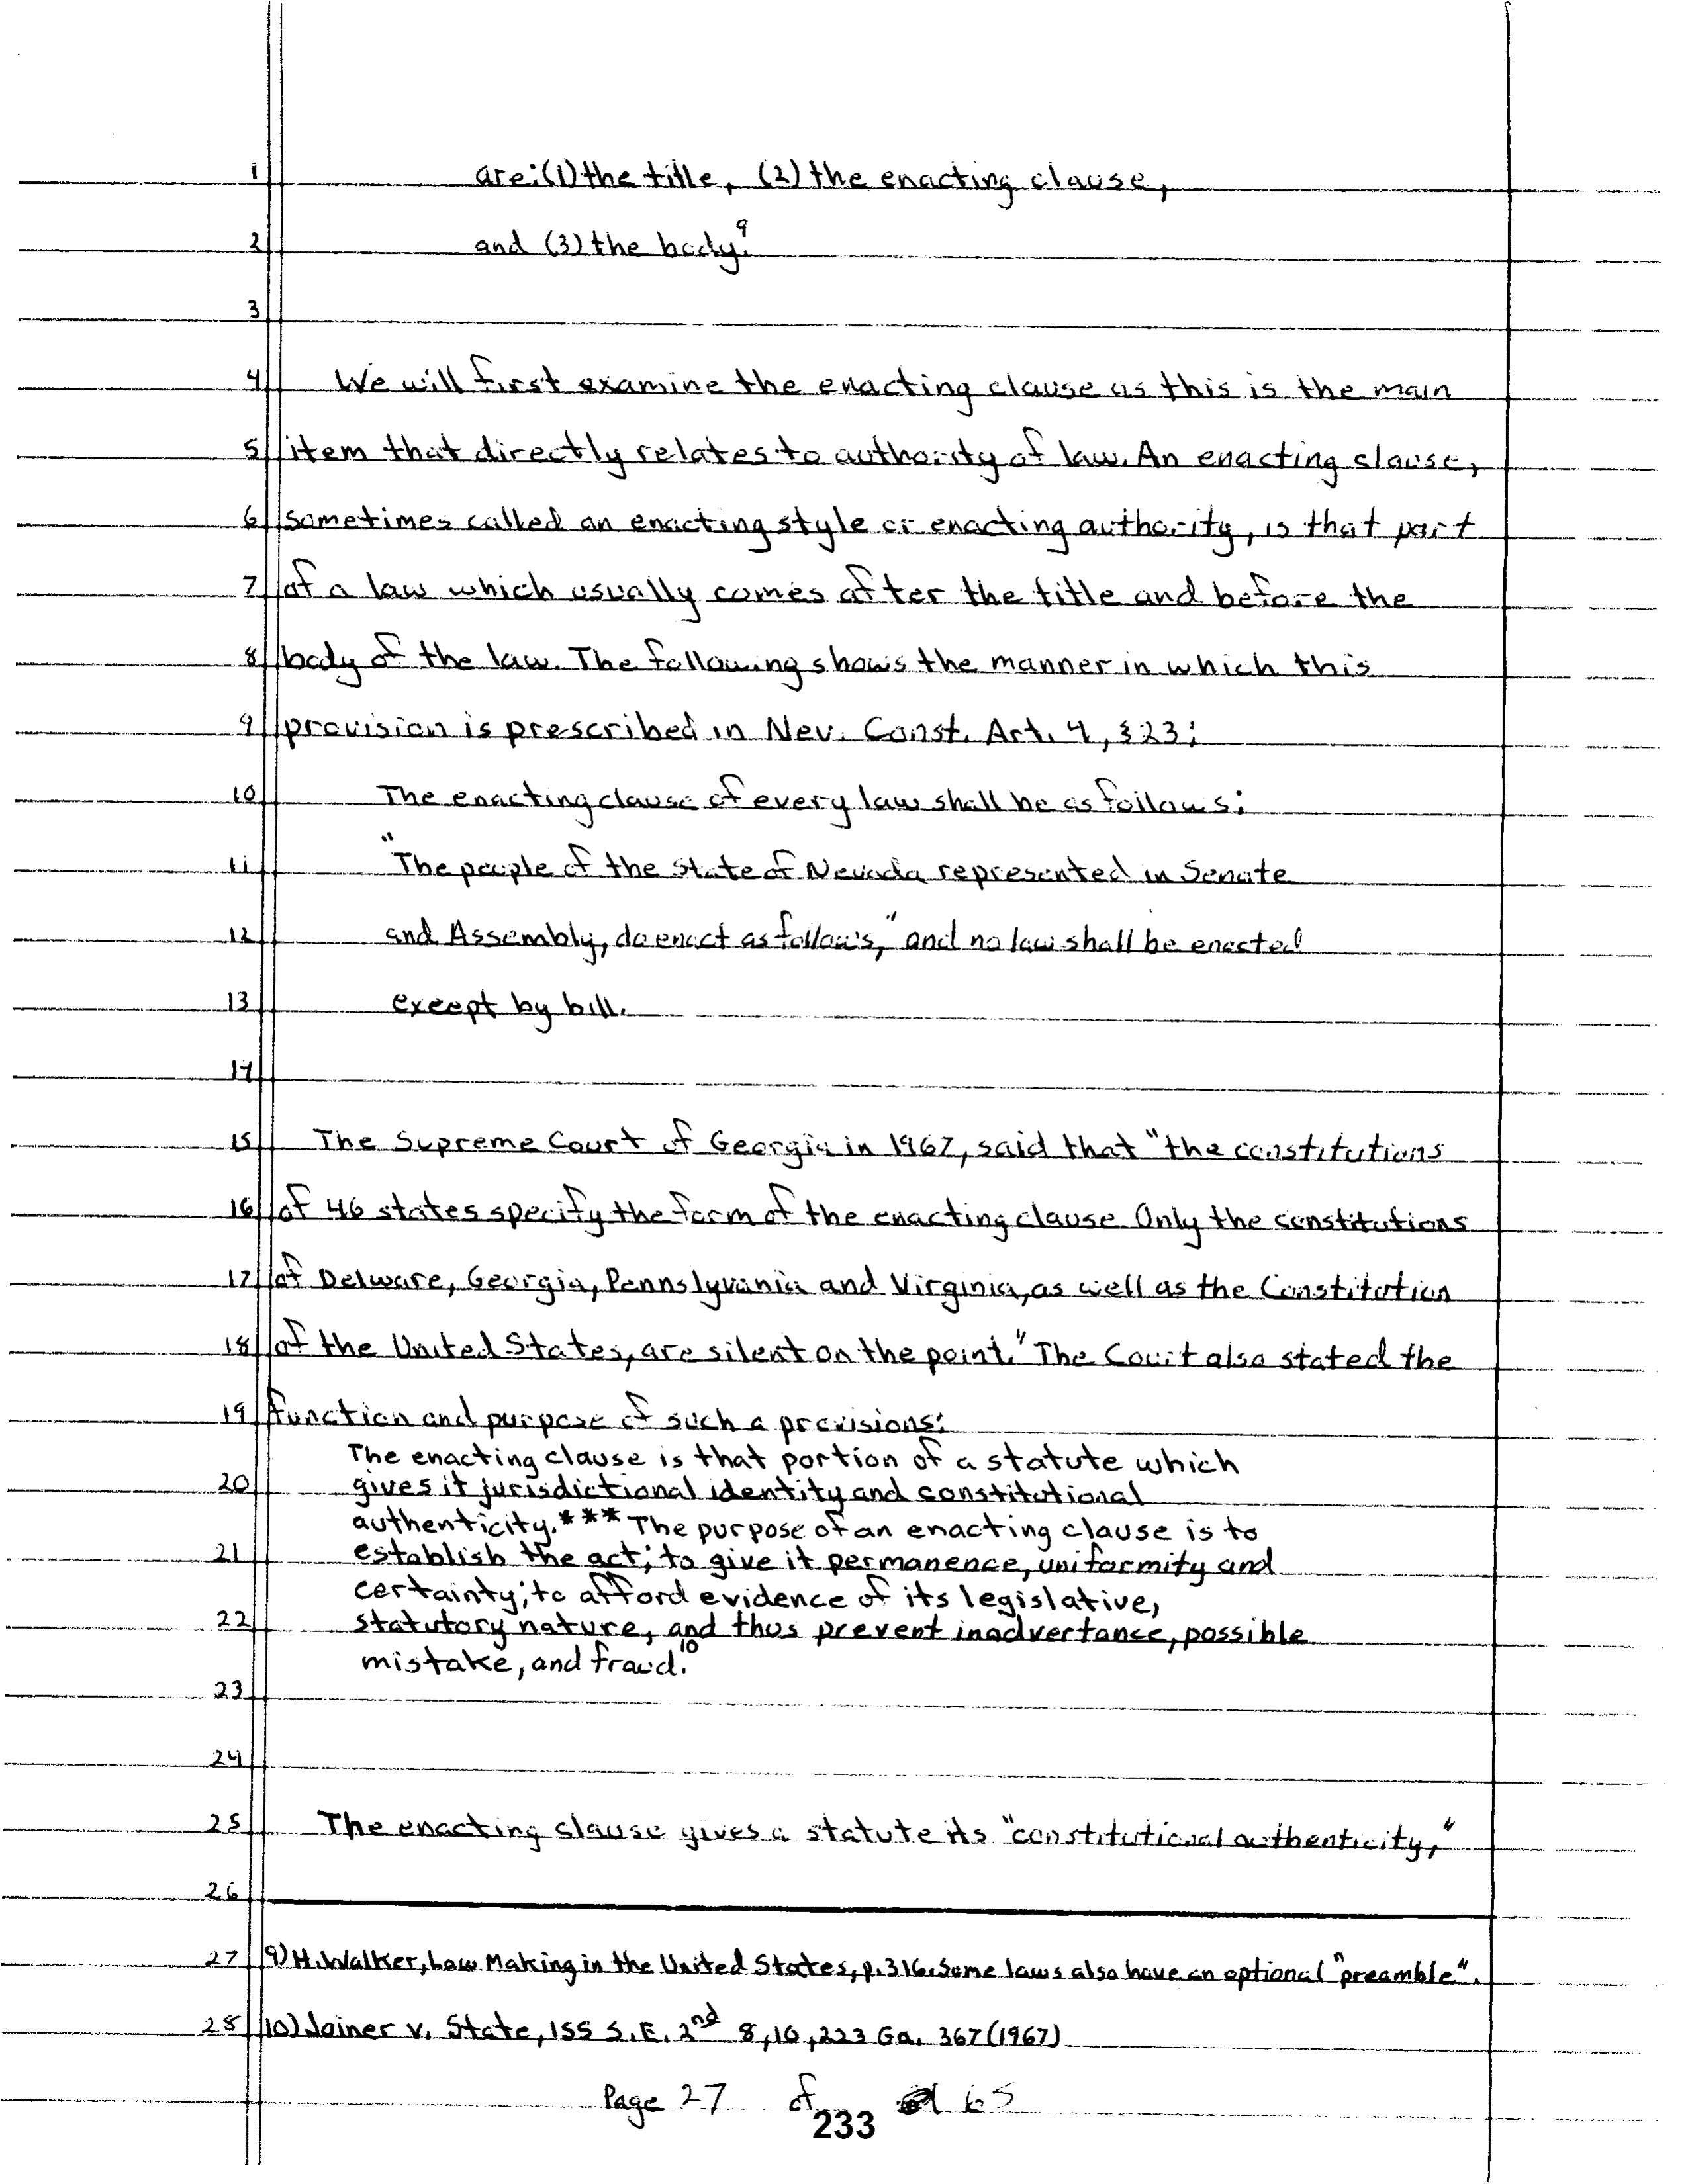 1 are: (1) the title, (2) the enacting clause,
2 and (3) the body.⁹
3
4 We will first examine the enacting clause as this is the main
5 item that directly relates to authority of law. An enacting clause,
6 sometimes called an enacting style or enacting authority, is that part
7 of a law which usually comes after the title and before the
8 body of the law. The following shows the manner in which this
9 provision is prescribed in Nev. Const. Art. 4, §23:
10 The enacting clause of every law shall be as follows:
11 "The people of the State of Nevada represented in Senate
12 and Assembly, do enact as follows," and no law shall be enacted
13 except by bill.
14
15 The Supreme Court of Georgia in 1967, said that "the constitutions
16 of 46 states specify the form of the enacting clause. Only the constitutions
17 of Delware, Georgia, Pennslyvania and Virginia, as well as the Constitution
18 of the United States, are silent on the point." The Court also stated the
19 function and purpose of such a provisions:
The enacting clause is that portion of a statute which
20 gives it jurisdictional identity and constitutional
authenticity.*** The purpose of an enacting clause is to
21 establish the act; to give it permanence, uniformity and
certainty; to afford evidence of its legislative,
22 statutory nature, and thus prevent inadvertance, possible
mistake, and fraud.¹⁰
23
24
25 The enacting clause gives a statute its "constitutional authenticity,"
26
27 9) H. Walker, Law Making in the United States, p. 316. Some laws also have an optional "preamble".
28 10) Joiner v. State, 155 S.E. 2nd 8, 10, 223 Ga. 367 (1967)
Page 27 of 65
233